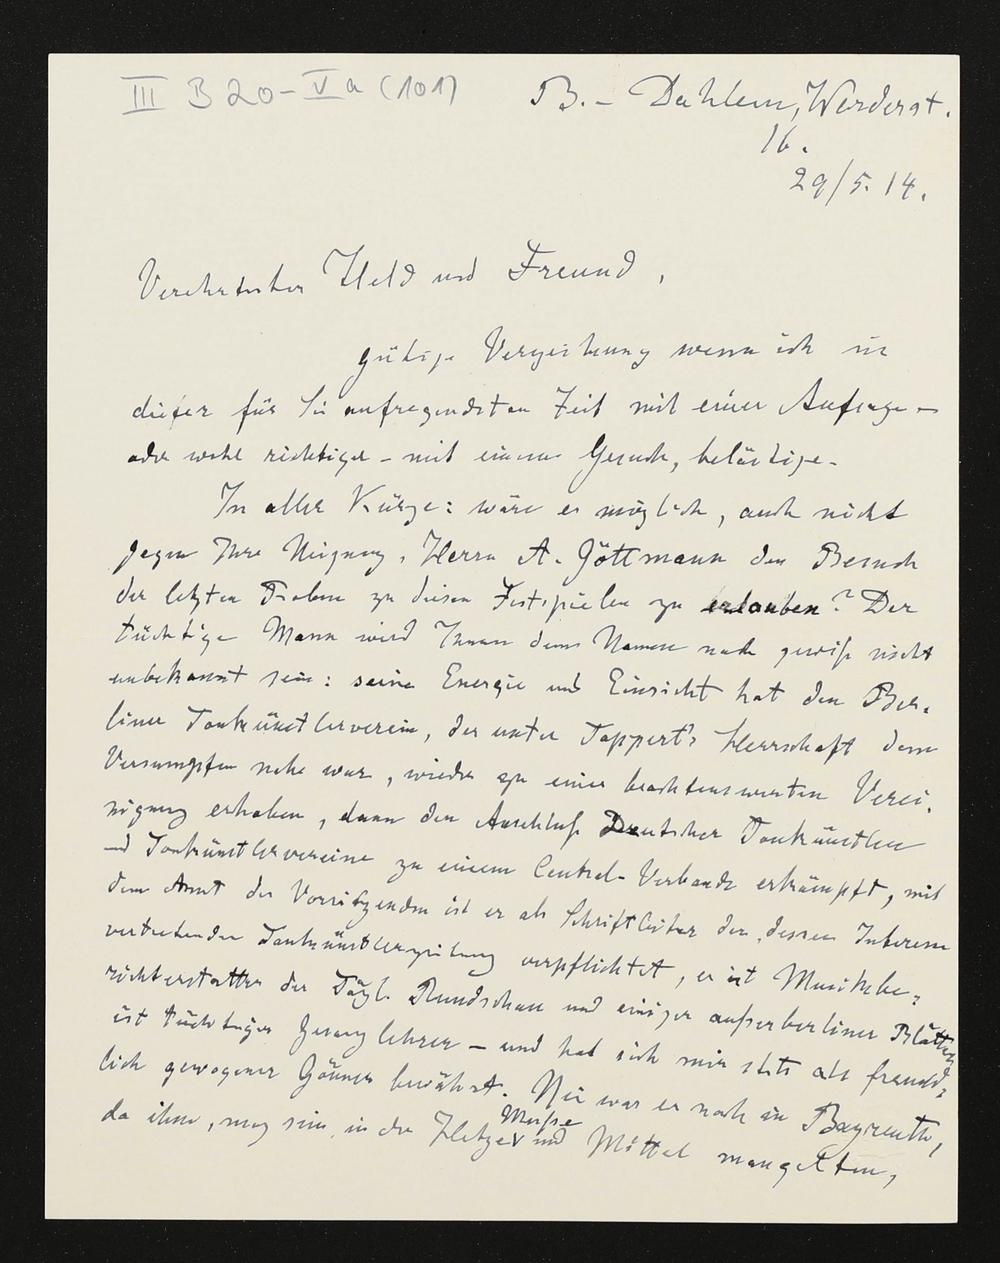 III B 20-Va (101)
B. - Dahlem, Werderst.
16.
29/5. 14.
Verehrtester Held und Freund,
gütige Verzeihung wenn ich in
dieser für Sie aufregendsten Zeit mit einer Anfrage -
oder wohl richtiger - mit einem Gesuch, belästige.
In aller Kürze: wäre es möglich, auch nicht
gegen Ihre Neigung, Herrn A. Göttmann den Besuch
der letzten Proben zu diesen Festspielen zu erlauben? Der
tüchtige Mann wird Ihnen dem Namen nach gewiß nicht
unbekannt sein: seine Energie und Einsicht hat den Ber-
liner Tonkünstlerverein, der unter Tappert's Herrschaft dem
Versumpfen nahe war, wieder zu einer beachtenswerten Verei-
nigung erhoben, dann den Anschluß Deutscher Tonkünstler
und Tonkünstlervereine zu einem Central-Verbande erkämpft, mit
dem Amt des Vorsitzenden ist er als Schriftleiter der, dessen Interessen
vertretenden Tonkünstlerzeitung verpflichtet, er ist Musikbe-
richterstatter der Tägl. Rundschau und einiger außerberliner Blätter,
ist tüchtiger Gesanglehrer - und hat sich mir stets als freund-
lich gewogener Gönner bewährt. Nie war er noch in Bayreuth,
da ihm, mag sein, in der Hetze Muße und Mittel mangelten,